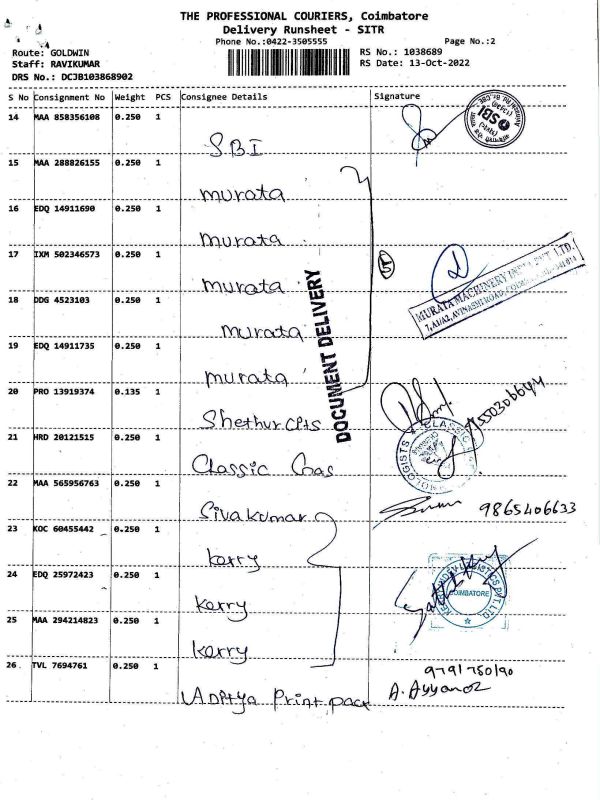 THE PROFESSIONAL COURIERS, Coimbatore
Delivery Runsheet - SITR
Phone No.:0422-3505555 Page No.:2
Route: GOLDWIN RS No.: 1038689
Staff: RAVIKUMAR RS Date: 13-Oct-2022
DRS No.: DCJB103868902
S No Consignment No Weight PCS Consignee Details Signature
14 MAA 858356108 0.250 1
SBI
SBI
15 MAA 288826155 0.250 1
murata
16 EDQ 14911690 0.250 1
murata
17 IXM 502346573 0.250 1
murata
5
MURATA MACHINERY INDIA PVT. LTD.
7,A1/A2, AVINASHI ROAD,
18 DDG 4523103 0.250 1
murata
19 EDQ 14911735 0.250 1
murata
DOCUMENT DELIVERY
20 PRO 13919374 0.135 1
Shethur
21 HRD 20121515 0.250 1
CLASSIC
Classic
22 MAA 565956763 0.250 1
Sivakumar 9865406633
23 KOC 60455442 0.250 1
kerry
24 EDQ 25972423 0.250 1
COIMBATORE
kerry
25 MAA 294214823 0.250 1
kerry
26. TVL 7694761 0.250 1
9791750190
Aditya Print pack